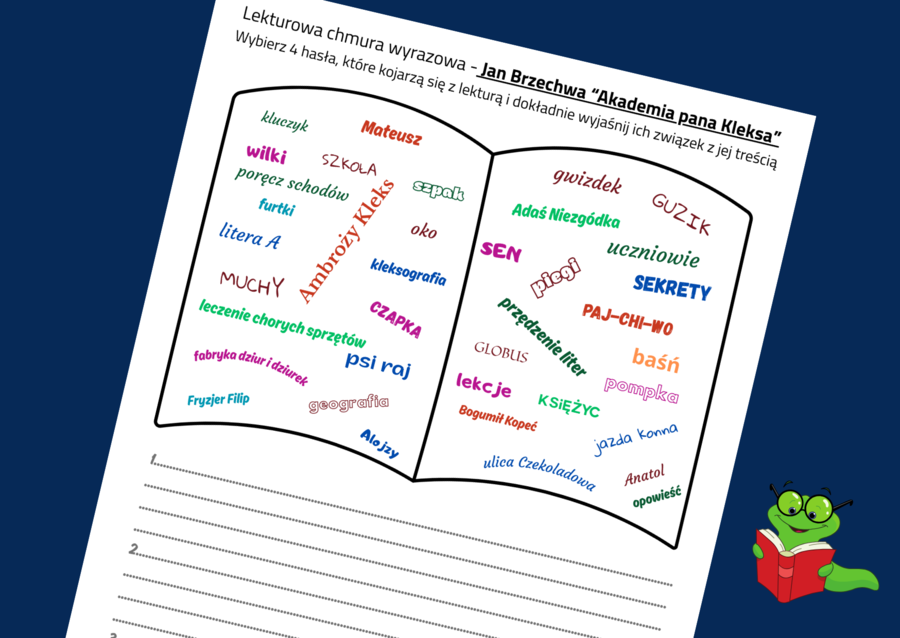 Lekturowa chmura wyrazowa - Jan Brzechwa “Akademia pana Kleksa”
Wybierz 4 hasła, które kojarzą się z lekturą i dokładnie wyjaśnij ich związek z jej treścią
kluczyk
Mateusz
wilki
SZKOŁA
poręcz schodów
szpak
furtki
Ambroży Kleks
oko
litera A
kleksografia
MUCHY
CZAPKA
leczenie chorych sprzętów
psi raj
fabryka dziur i dziurek
Fryzjer Filip
geografia
Alojzy
gwizdek
GUZIK
Adaś Niezgódka
uczniowie
SEN
piegi
SEKRETY
przędzenie liter
PAJ-CHI-WO
GLOBUS
baśń
lekcje
pompka
KSIĘŻYC
Bogumił Kopeć
jazda konna
ulica Czekoladowa
Anatol
opowieść
1.
2.
3